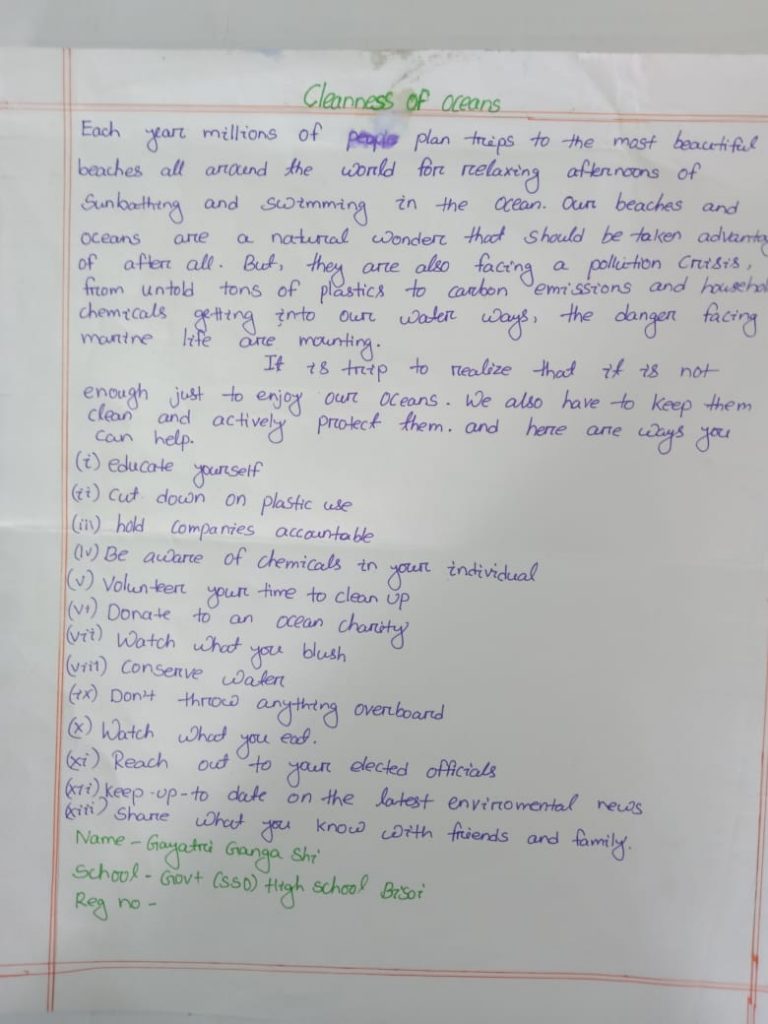 Cleanness of oceans
Each year millions of people plan trips to the most beautiful
beaches all around the world for relaxing afternoons of
Sunbathing and swimming in the ocean. Our beaches and
oceans are a natural wonder that should be taken advantag
of after all. But, they are also facing a pollution crisis,
from untold tons of plastics to carbon emissions and househol
chemicals getting into our water ways, the danger facing
marine life are mounting.
It is trip to realize that it is not
enough just to enjoy our oceans. We also have to keep them
clean and actively protect them. and here are ways you
can help.
(i) educate yourself
(ii) cut down on plastic use
(iii) hold companies accountable
(iv) Be aware of chemicals in your individual
(v) Volunteer your time to clean up
(vi) Donate to an ocean charity
(vii) Watch what you blush
(viii) conserve water
(ix) Don't throw anything overboard
(x) Watch what you eat.
(xi) Reach out to your elected officials
(xii) keep-up-to date on the latest enviromental news
(xiii) Share what you know with friends and family.
Name - Gayatri Ganga Shi
School - Govt (SSD) High school Bisoi
Reg no -